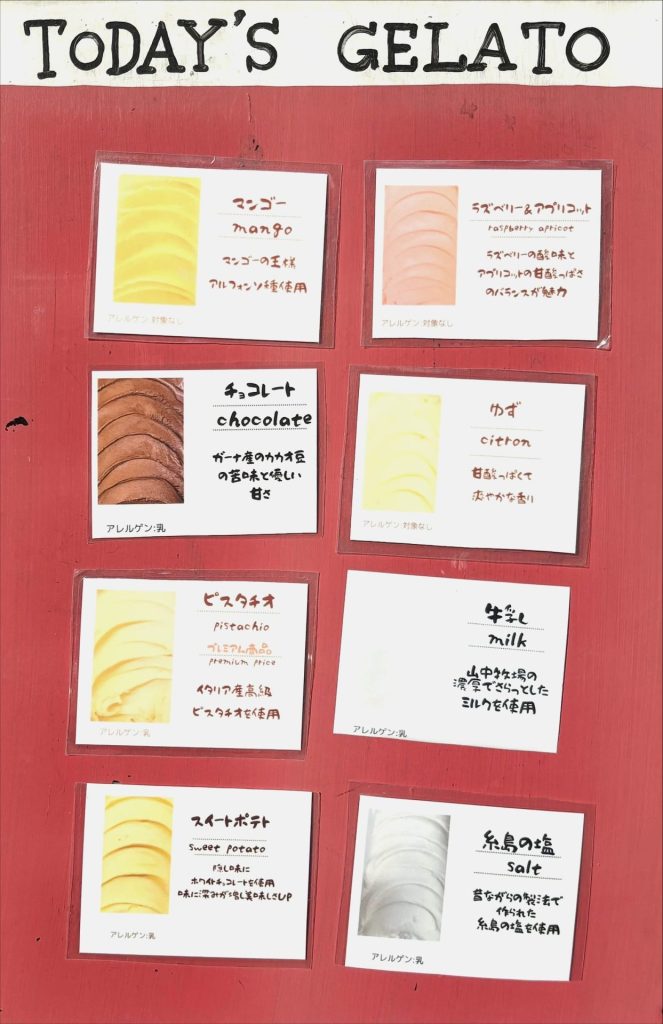 TODAY'S GELATO
マンゴー
mango
マンゴーの王様
アルフォンソ種使用
アレルゲン:対象なし
ラズベリー&アプリコット
raspberry apricot
ラズベリーの酸味と
アプリコットの甘酸っぱさ
のバランスが魅力
アレルゲン:対象なし
チョコレート
chocolate
ガーナ産のカカオ豆
の苦味と優しい
甘さ
アレルゲン:乳
ゆず
citron
甘酸っぱくて
爽やかな香り
アレルゲン:対象なし
ピスタチオ
pistachio
プレミアム商品
premium price
イタリア産高級
ピスタチオを使用
アレルゲン:乳
牛乳
milk
山中牧場の
濃厚でさらっとした
ミルクを使用
アレルゲン:乳
スイートポテト
sweet potato
隠し味に
ホワイトチョコレートを使用
味に深みが増し美味しさUP
アレルゲン:乳
糸島の塩
salt
昔ながらの製法で
作られた
糸島の塩を使用
アレルゲン:乳